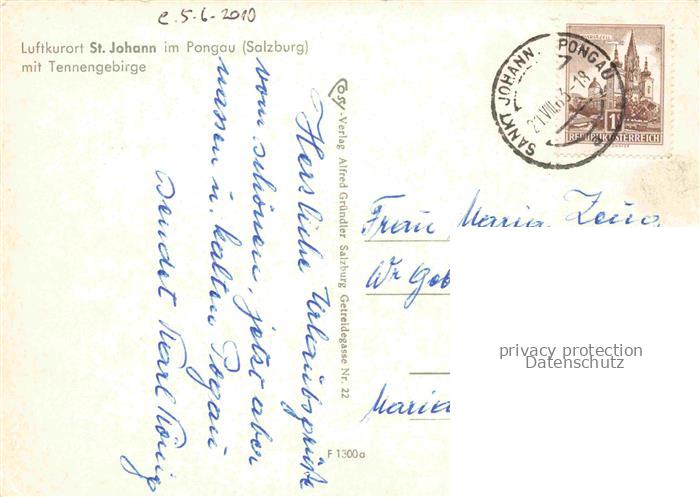 e.5.-6-2010
Luftkurort St. Johann im Pongau (Salzburg)
mit Tennengebirge
Cosy-Verlag Alfred Gründler Salzburg Getreidegasse Nr. 22
Herzliche Urlaubsgrüße
vom schönen, jetzt aber
nassen u. kalten Pogau
sendet Karl König
F 1300a
SANKT JOHANN. PONGAU
21.VIII.63-18
1S
REPUBLIK ÖSTERREICH
Frau Maria
Wr
Maria
privacy protection
Datenschutz